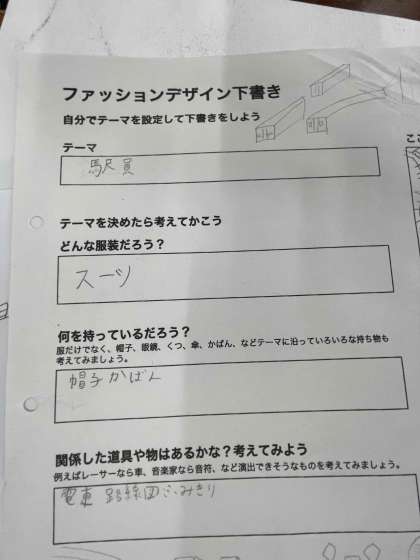 ファッションデザイン下書き
自分でテーマを設定して下書きをしよう
テーマ
駅員
テーマを決めたら考えてかこう
どんな服装だろう？
スーツ
何を持っているだろう？
服だけでなく、帽子、眼鏡、くつ、傘、かばん、などテーマに沿っていろいろな持ち物も
考えてみましょう。
帽子かばん
関係した道具や物はあるかな？考えてみよう
例えばレーサーなら車、音楽家なら音符、など演出できそうなものを考えてみましょう。
電車 路線図ふみきり